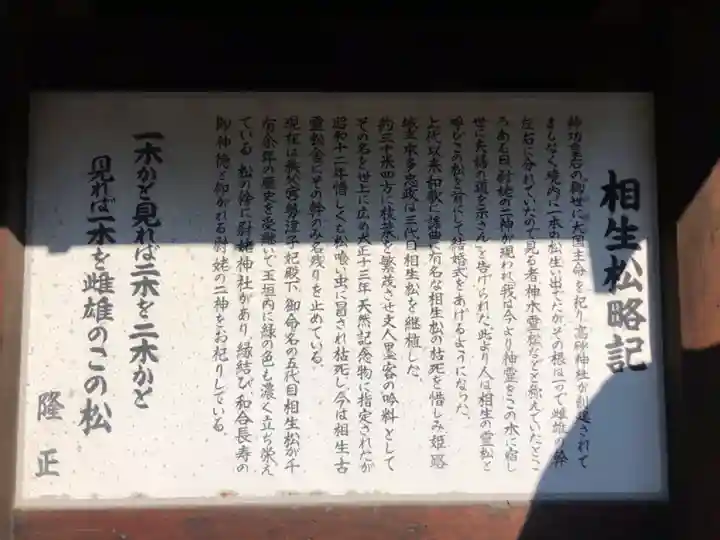 相生松略記
神功皇后の御世に大国主命を祀り高砂神社が創建されて
まもなく境内に一本の松生い出でたがその根は一つで雌雄の幹
左右に分れていたので見る者神木霊松などと称えていたところ
ある日尉姥の二神が現われ我は今より神霊をこの木に宿し
世に夫婦の道を示さんと告げられた。此より人は相生の霊松と
呼びこの松を前にして結婚式をあげるようになった。
上代以来和歌に謡曲に有名な相生松の枯死を惜しみ姫路
城主本多忠政は三代目相生松を継植した。
約三十米四方に枝葉を繁茂させ文人墨客の吟料として
その名を世上に広め大正十三年天然記念物に指定されたが
昭和十二年惜しくも松喰い虫に冒され枯死し今は相生古
霊松舎にその幹のみ名残りを止めている。
現在は秩父宮勢津子妃殿下御命名の五代目相生松が千
有余年の歴史を受継いで玉垣内に緑の色も濃く立ち栄え
ている 松の陰に尉姥神社があり縁結び和合長寿の
御神徳と仰がれる尉姥の二神をお祀りしている
一木かと見れば二木を二木かと
見れば一木を雌雄のこの松
隆正